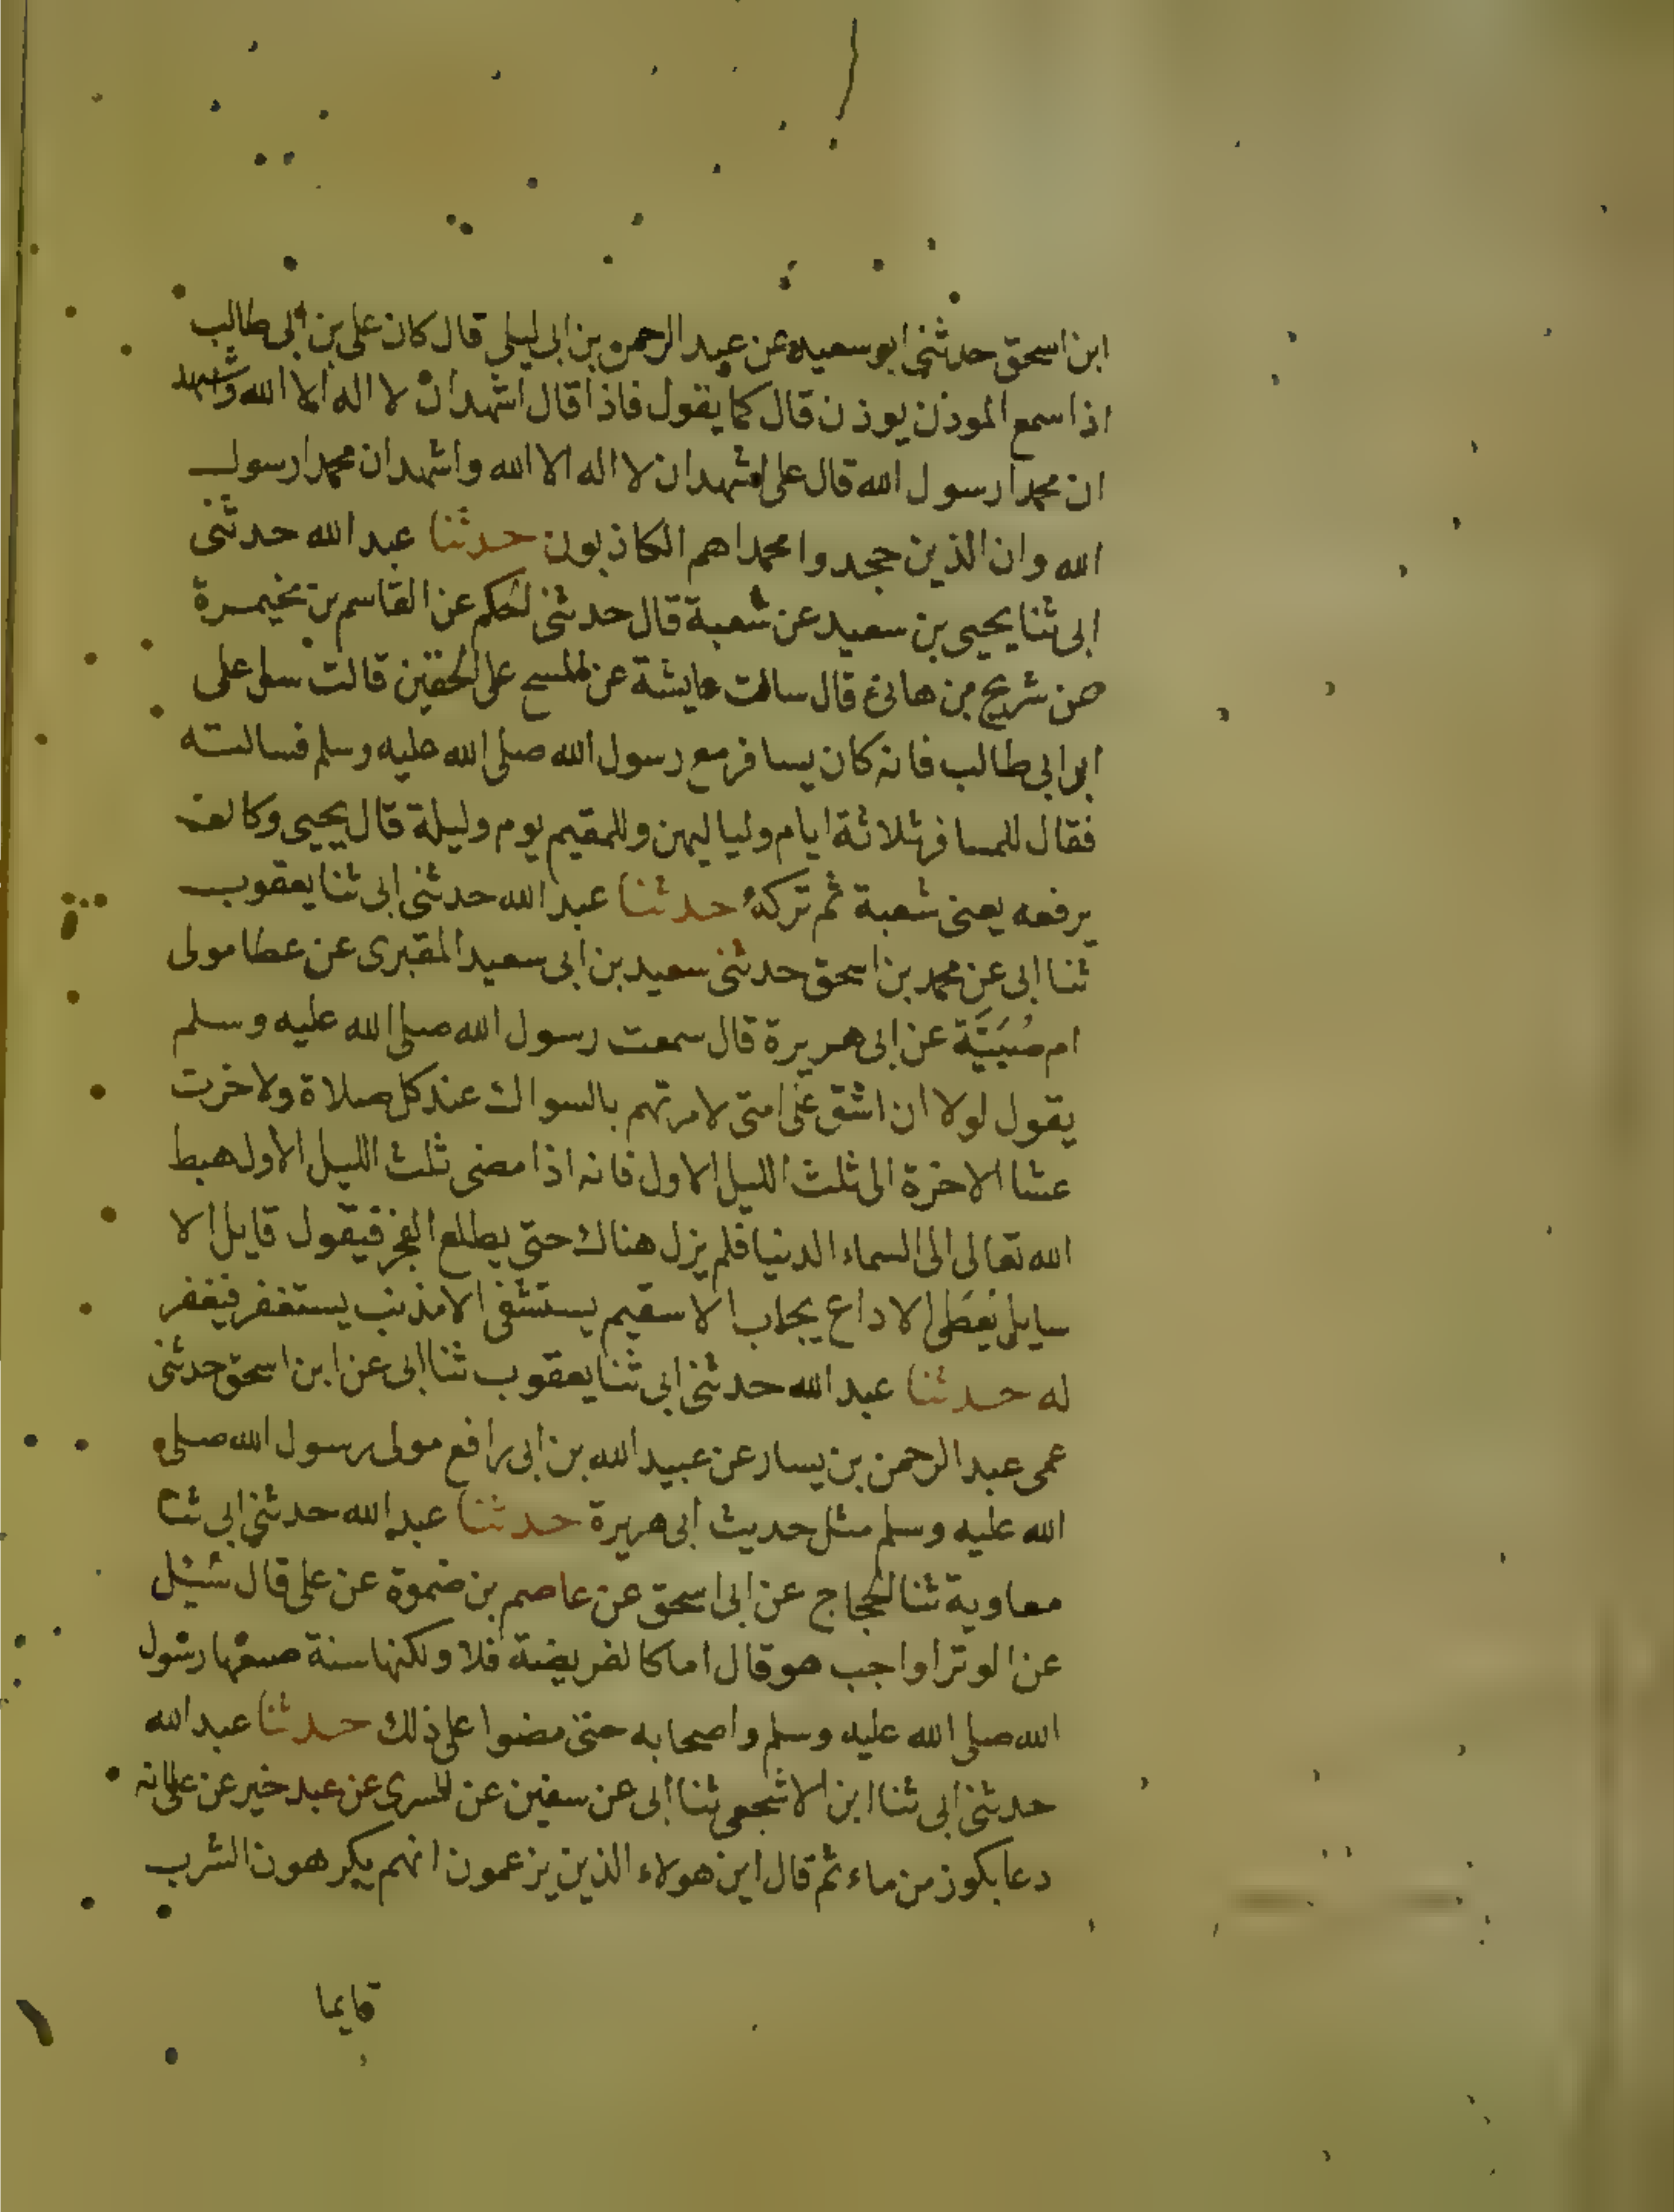 ابن اسحق حدثنى ابو سعيد عن عبد الرحمن بن ابى ليلى قال كان على بن ابى طالب
اذا سمع الموذن يوذن قال كما يقول فاذا قال اشهد ان لا اله الا الله واشهد
ان محمدا رسول الله قال على اشهد ان لا اله الا الله واشهد ان محمدا رسول
الله وان الذين جحدوا محمدا هم الكاذبون حدثنا عبد الله حدثنى
ابى ثنا يحيى بن سعيد عن شعبة قال حدثنى الحكم عن القاسم بن مخيمرة
عن شريح بن هانئ قال سالت عايشة عن المسح على الخفين قالت سل على
ابن ابى طالب فانه كان يسافر مع رسول الله صلى الله عليه وسلم فسالته
فقال للمسافر ثلاثة ايام ولياليهن وللمقيم يوم وليلة قال يحيى وكان
يرفعه يعنى شعبة ثم تركه حدثنا عبد الله حدثنى ابى ثنا يعقوب
ثنا ابى عن محمد بن اسحق حدثنى سعيد بن ابى سعيد المقبرى عن عطا مولى
ام صُبَيَّة عن ابى هريرة قال سمعت رسول الله صلى الله عليه وسلم
يقول لولا ان اشق على امتى لامرتهم بالسواك عند كل صلاة ولاخرت
عشا الاخرة الى ثلث الليل الاول فانه اذا مضى ثلث الليل الاول هبط
الله تعالى الى السماء الدنيا فلم يزل هناك حتى يطلع الفجر فيقول قايل الا
سايل يُعطَى الا داع يجاب الا سقيم يستشفى الا مذنب يستغفر فيغفر
له حدثنا عبد الله حدثنى ابى ثنا يعقوب ثنا ابى عن ابن اسحق حدثنى
عمى عبد الرحمن بن يسار عن عبيد الله بن ابى رافع مولى رسول الله صلى
الله عليه وسلم مثل حديث ابى هريرة حدثنا عبد الله حدثنى ابى ثنا
معاوية ثنا الحجاج عن ابى اسحق عن عاصم بن ضمرة عن على قال سُئل
عن الوتر اواجب هو قال اما كالفريضة فلا ولكنها سنة صنعها رسول
الله صلى الله عليه وسلم واصحابه حتى مضوا على ذلك حدثنا عبد الله
حدثنى ابى ثنا ابن الاشجعى ثنا ابى عن سفين عن السدى عن عبد خير عن على انه
دعا بكوز من ماء ثم قال اين هولاء الذين يزعمون انهم يكرهون الشرب
قايما